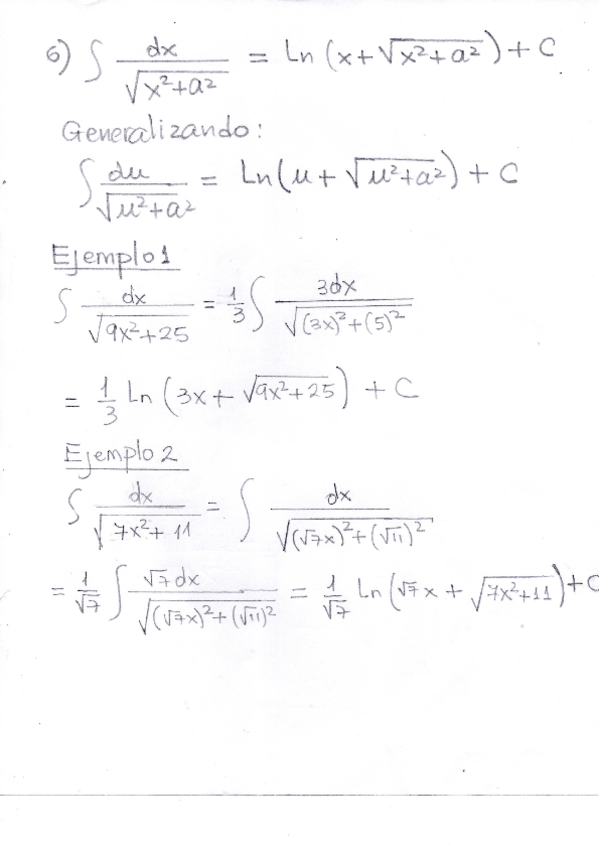 6) ∫ dx / √(x²+a²) = Ln (x+√(x²+a²)) + C
Generalizando:
∫ du / √(u²+a²) = Ln(u + √(u²+a²)) + C
Ejemplo 1
∫ dx / √(9x²+25) = 1/3 ∫ 3dx / √((3x)²+(5)²)
= 1/3 Ln (3x + √(9x²+25)) + C
Ejemplo 2
∫ dx / √(7x²+11) = ∫ dx / √((√7x)²+(√11)²)
= 1/√7 ∫ √7 dx / √((√7x)²+(√11)²) = 1/√7 Ln (√7 x + √(7x²+11)) + C